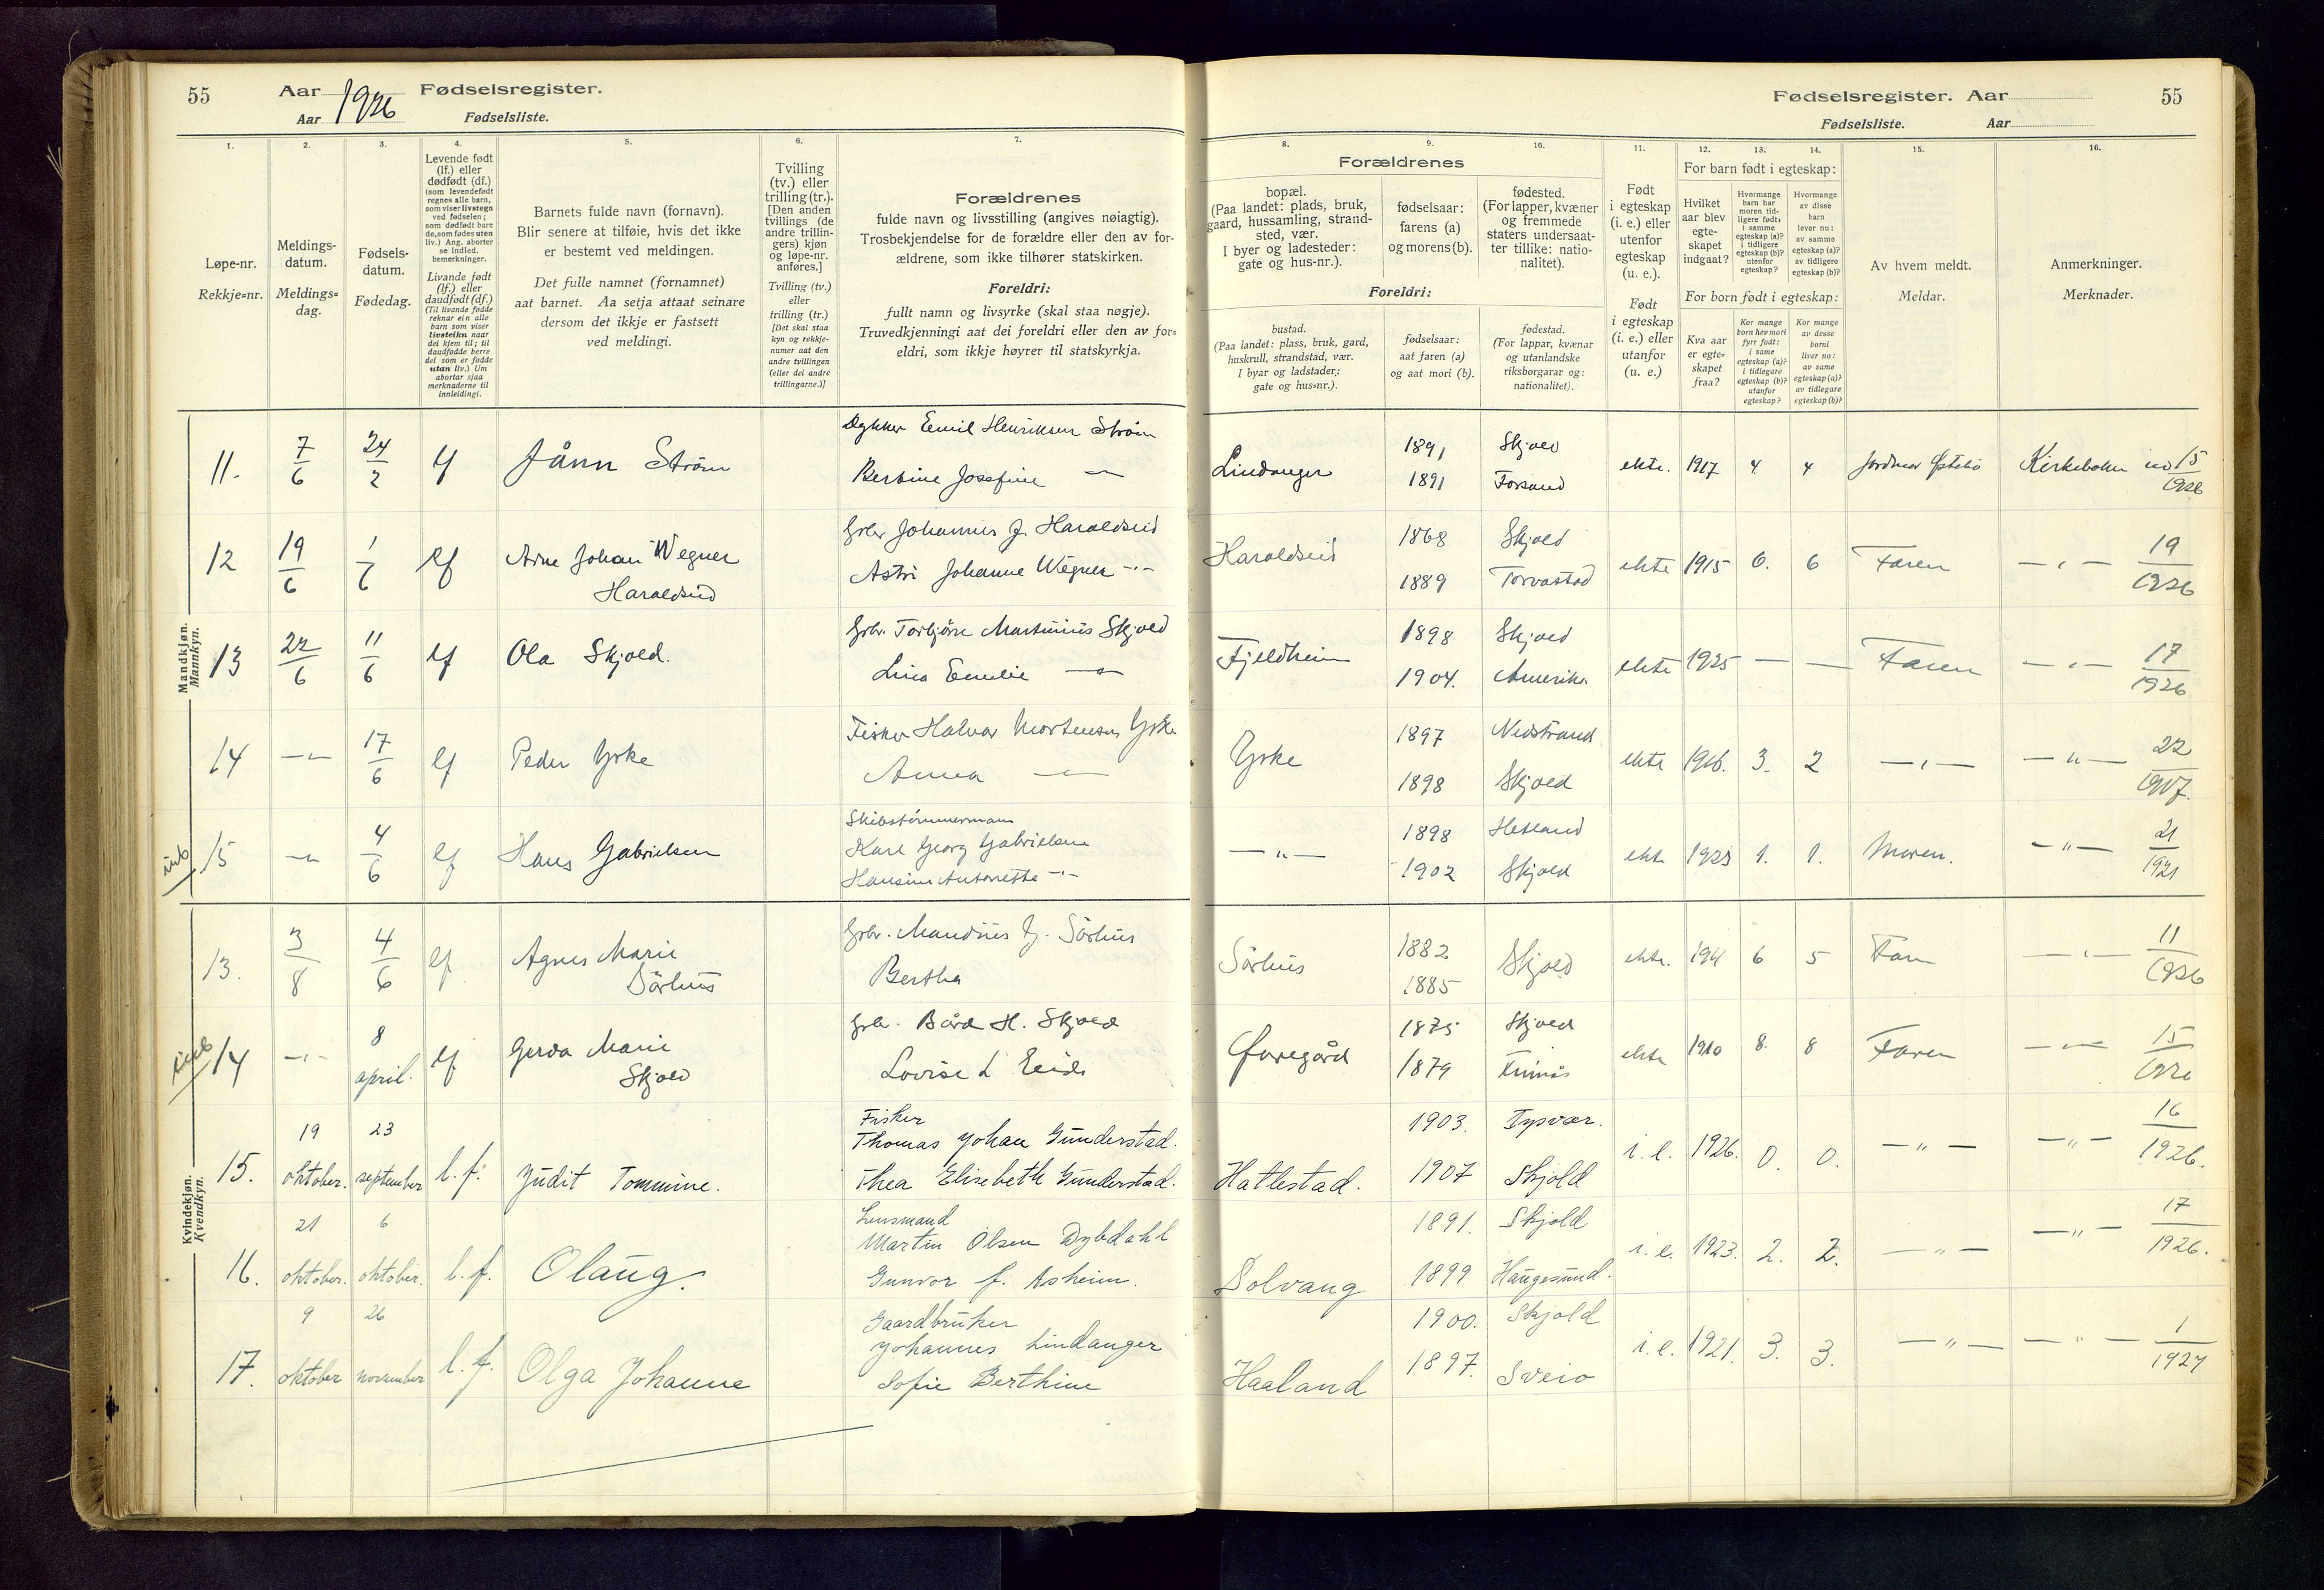 55 Aar 1926 Fødselsregister.
Aar Fødselsliste.
Fødselsregister. Aar 55
Fødselsliste. Aar
1. 2. 3. 4. 5. 6. 7. 8. 9. 10. 11. 12. 13. 14. 15. 16.
Løpe-nr.
Rekkje=nr.
Meldings-
datum.
Meldings=
dag.
Fødsels-
datum.
Fødedag.
Levende født
(lf.) eller
dødfødt (df.)
(som levendefødt
regnes alle barn,
som viser livstegn
ved fødselen;
som dødfødt bare
de, som fødes uten
liv.) Ang. aborter
se indled.
bemerkninger.
Livande født
(lf.) eller
daudfødt (df.)
(Til livande fødde
reknar ein alle
barn som viser
livsteikn naar
dei kjem til; til
daudfødde berre
dei som er fødde
utan liv.) Um
abortar sjaa
merknaderne til
innleidingi.
Barnets fulde navn (fornavn).
Blir senere at tilføie, hvis det ikke
er bestemt ved meldingen.
Det fulle namnet (fornamnet)
aat barnet. Aa setja attaat seinare
dersom det ikkje er fastsett
ved meldingi.
Tvilling
(tv.) eller
trilling (tr.).
[Den anden
tvillings (de
andre trillin-
gers) kjøn
og løpe-nr.
anføres.]
Tvilling (tv.)
eller
trilling (tr.)
[Det skal staa
kyn og rekkje-
numer aat den
andre tvillingen
(eller dei andre
trillingarne.)]
Forældrenes
fulde navn og livsstilling (angives nøiagtig).
Trosbekjendelse for de forældre eller den av for-
ældrene, som ikke tilhører statskirken.
Foreldri:
fullt namn og livsyrke (skal staa nøgje).
Truvedkjenningi aat dei foreldri eller den av for=
eldri, som ikkje høyrer til statskyrkja.
Forældrenes
bopæl.
(Paa landet: plads, bruk,
gaard, hussamling, strand-
sted, vær.
I byer og ladesteder:
gate og hus-nr.).
fødselsaar:
farens (a)
og morens (b).
fødested.
(For lapper, kvæner
og fremmede
staters undersaat-
ter tillike: natio-
nalitet).
Foreldri:
bustad.
(Paa landet: plass, bruk, gard,
huskrull, strandstad, vær.
I byar og ladstader:
gate og hus=nr.).
fødselsaar:
aat faren (a)
og aat mori (b).
fødestad.
(For lappar, kvænar
og utanlandske
riksborgarar og:
nationalitet).
Født
i egteskap
(i. e.) eller
utenfor
egteskap
(u. e.).
Født
i egteskap
(i. e.) eller
utanfor
egteskap
(u. e.)
For barn født i egteskap:
Hvilket
aar blev
egte-
skapet
indgaat?
Hvormange
barn har
moren tid-
ligere født:
i samme
egteskap (a)?
i tidligere
egteskap (b)?
utenfor
egteskap?
Hvormange
av disse
barn
lever nu:
av samme
egteskap (a)?
av tidligere
egteskap (b)?
For born født i egteskap:
Kva aar
er egte=
skapet
fraa?
Kor mange
born hev mori
fyrr født:
i same
egteskap (a)?
i tidlegare
egteskap (b)?
utanfor
egteskap?
Kor mange
av desse
borni
liver no:
av same
egteskap (a)?
av tidlegare
egteskap (b)?
Av hvem meldt.
Meldar.
Anmerkninger.
Merknader.
Mandkjøn.
Mannkyn.
11. 7/6 24/2 lf Jånn Strøm
Dykker Emil Henriksen Strøm
Bertine Josefine —"—
Lindanger 1891 Skjold
1891 Forsand
ekte. 1917 4 4 Jordmor Østebø Kirkeboken no 15/1926
12 19/6 1/6 lf Arne Johan Wegner
Haraldseid
Grbr Johannes J. Haraldseid
Astri Johanne Wegner —"—
Haraldseid 1868 Skjold
1889 Torvastad
ekte 1915 6. 6 Faren —"— 19/1926
13 22/6 11/6 lf Ola Skjold.
Grbr. Torbjørn Martinius Skjold
Lina Emilie —"—
Fjeldheim 1898 Skjold
1904. Amerika
ekte 1925 — — Faren —"— 17/1926
14 —"— 17/6 lf Peder Yrke
Fisker Halvor Mortensen Yrke
Anna —"—
Yrke 1897 Nedstrand
1898 Skjold
ekte 1916. 3. 2 —"— —"— 22/1917.
15 —"— 4/6 lf Hans Gabrielsen
Skibstømmermann
Karl Georg Gabrielsen
Hansine Antonette —"—
—"— 1898 Hetland
1902 Skjold
ekte 1923 1. 1. Moren. —"— 21/1921
Kvindekjøn.
Kvendkyn.
13. 3/8 4/6 lf Agnes Marie
Sørhus
Grbr. Mandius J. Sørhus
Bertha
Sørhus 1882
1885 Skjold
ekte. 1911 6 5 Faren —"— 11/1926
14 —"— 8
april. lf Gerda Marie
Skjold
Grbr. Bård H. Skjold
Lovise L Eide
Øvregård 1875 Skjold
1879
ekte 1910 8. 8 Faren —"— 15/1926
15. 19
oktober. 23
september l. f. Judit Tommine.
Fisker
Thomas Johan Gunderstad.
Thea Elisebeth Gunderstad.
Hatlestad. 1903. Tysvær.
1907 Skjold
i. e. 1926. 0. 0. —"— —"— 16/1926.
16. 21
oktober. 6
oktober. l. f. Olaug.
Lensmand
Martin Olsen Dybdahl
Gunvor f. Asheim.
Solvang 1891. Skjold
1899 Haugesund.
i. e. 1923. 2. 2. —"— —"— 17/1926.
17. 9
oktober 26
november l. f. Olga Johanne
Gaardbruker
Johannes Lindanger
Sofie Berthine
Haaland 1900. Skjold
1897. Sveio
i. e. 1921. 3. 3. —"— —"— 1/1927